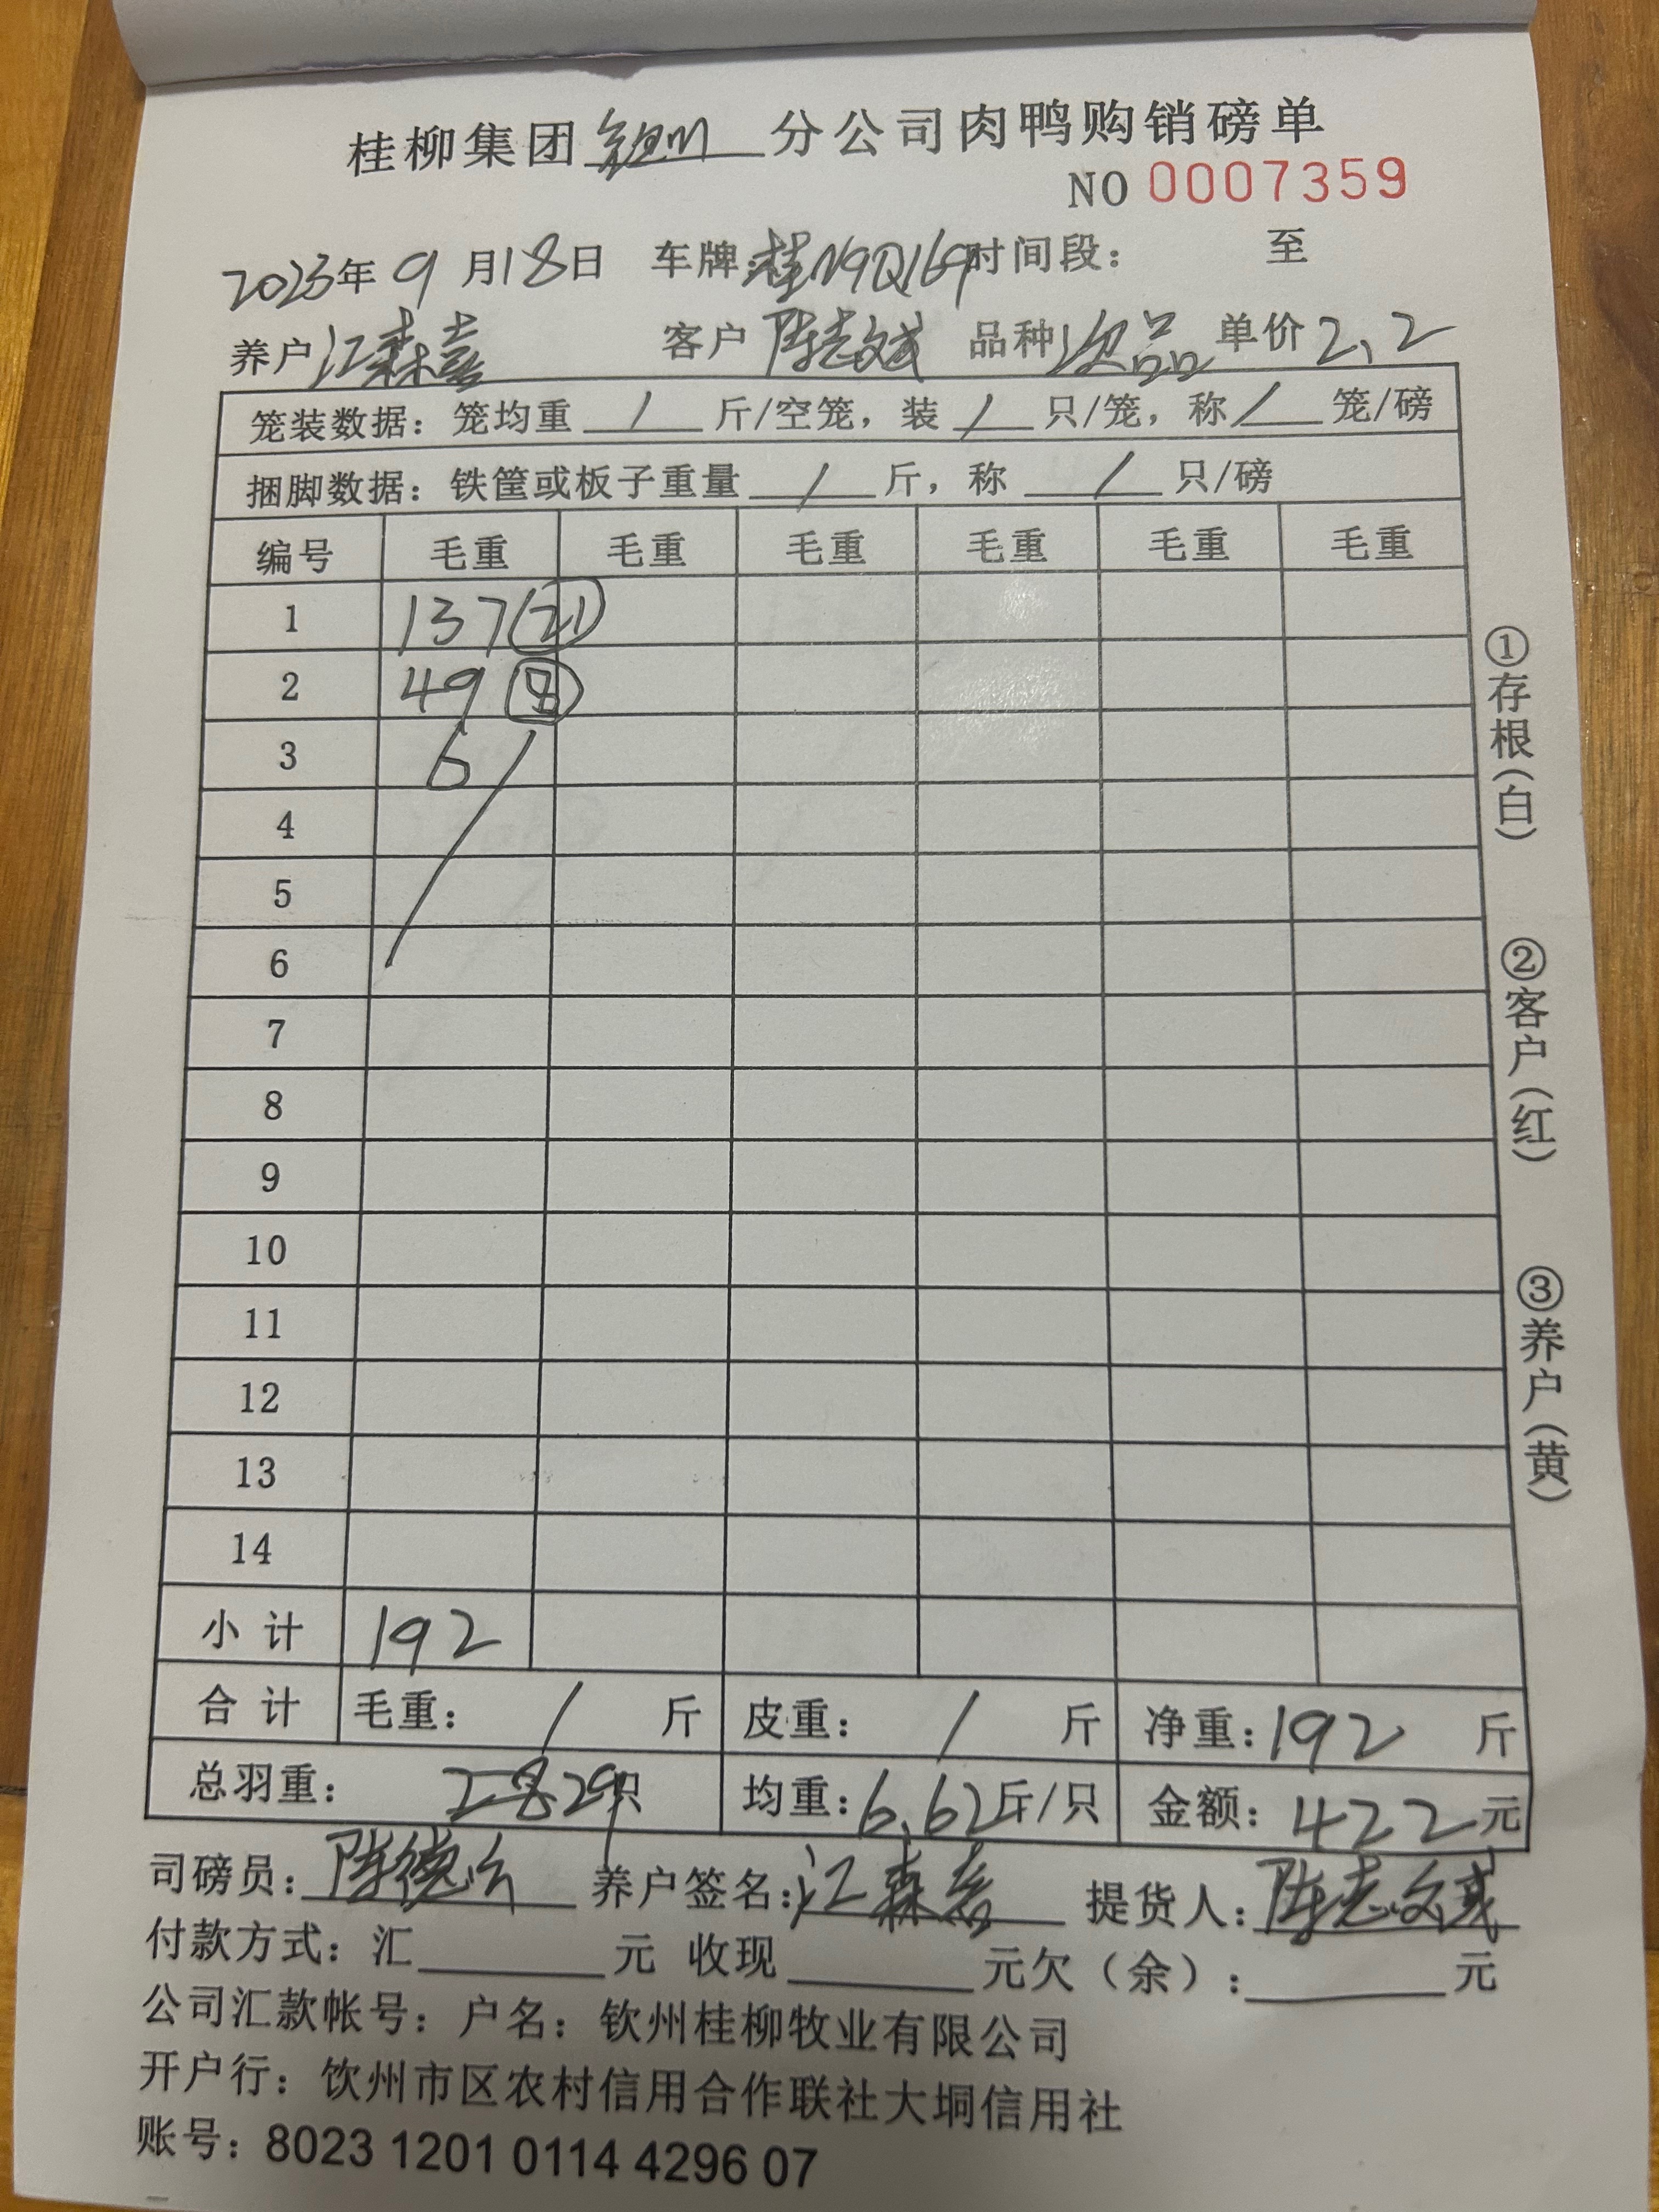 桂柳集团 分公司肉鸭购销磅单
NO 0007359
2023年 9 月18日 车牌:桂N9Q169 时间段: 至
养户 江森喜 客户 陈志斌 品种 次品 单价 2.2
笼装数据: 笼均重 / 斤/空笼, 装 / 只/笼, 称 / 笼/磅
捆脚数据: 铁筐或板子重量 / 斤, 称 / 只/磅
编号 毛重 毛重 毛重 毛重 毛重 毛重
1 137 (21)
2 49
3 6
4
5
6
7
8
9
10
11
12
13
14
小计 192
合计 毛重: / 斤 皮重: / 斤 净重: 192 斤
总羽重: 29只 均重: 6.62斤/只 金额: 422元
司磅员: 陈德 养户签名: 江森喜 提货人: 陈志斌
付款方式: 汇 元 收现 元欠(余): 元
公司汇款帐号: 户名: 钦州桂柳牧业有限公司
开户行: 钦州市区农村信用合作联社大垌信用社
账号: 8023 1201 0114 4296 07
①存根(白)
②客户(红)
③养户(黄)